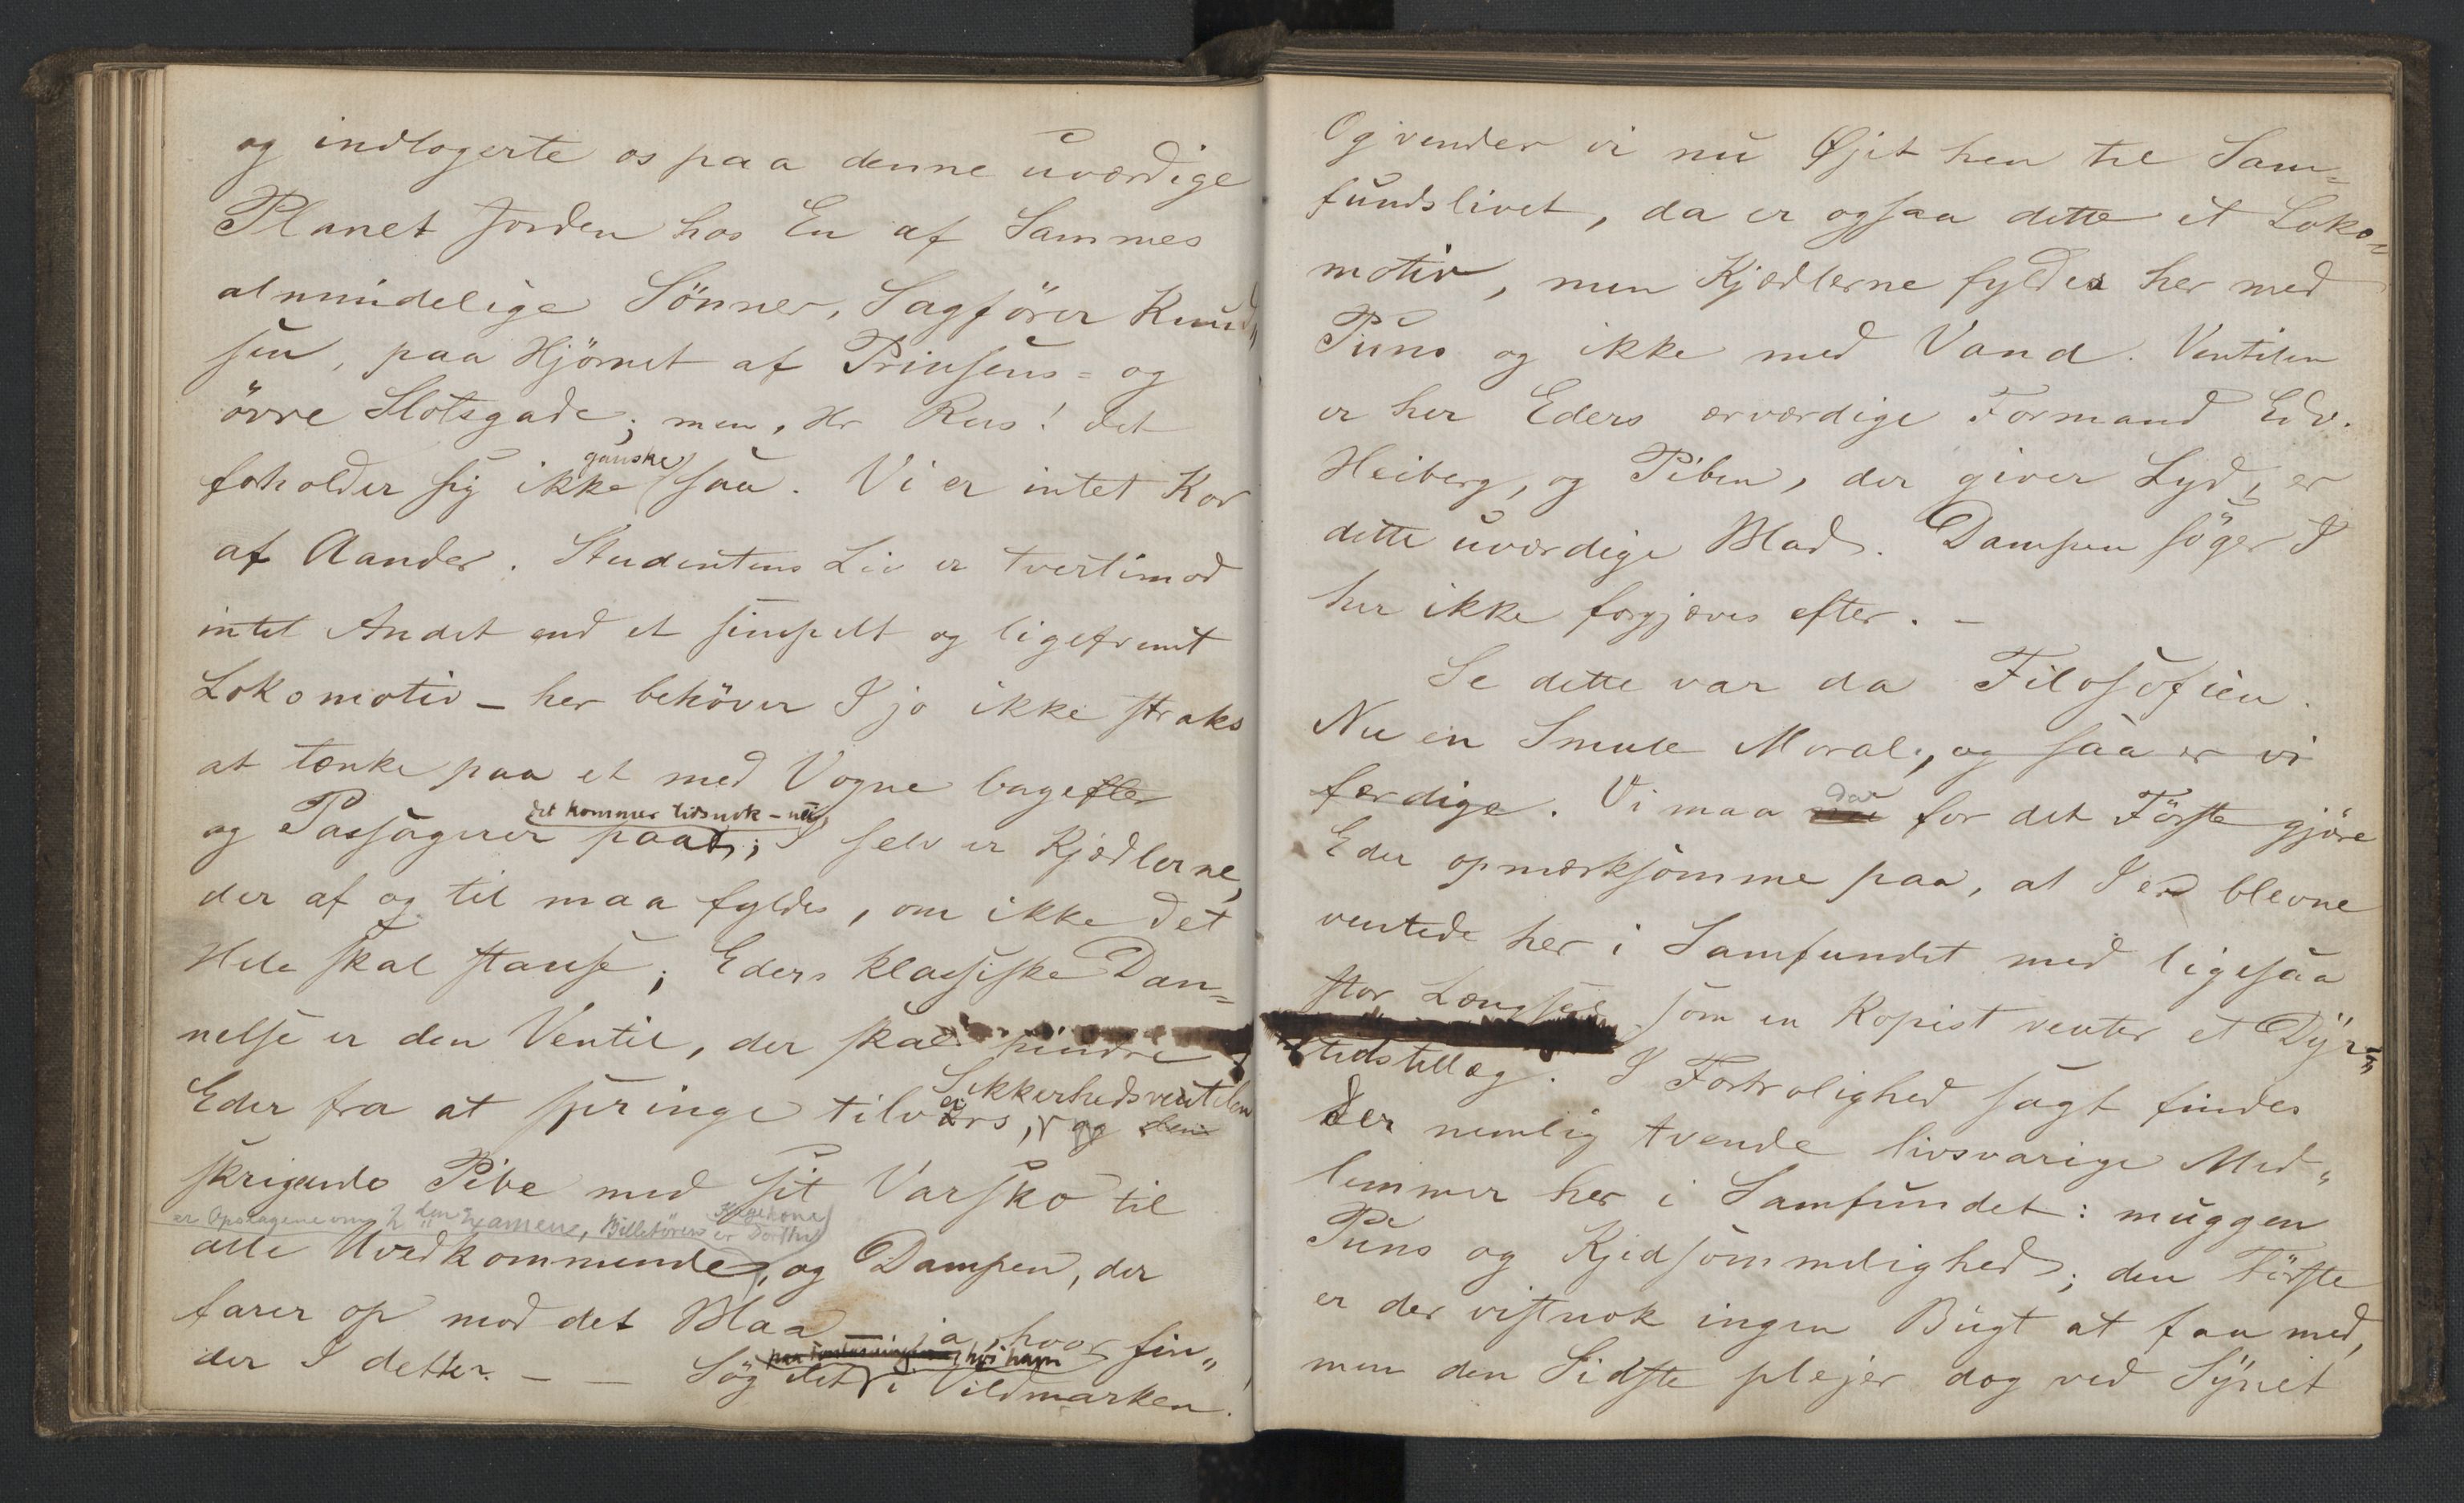 og indlogerte os paa denne uværdige
Planet Jorden hos En af Sammes
almindelige Sönner, Sagförer Knud„
sen, paa Hjörnet af Prinsens= og
övre Slotsgade; men, Hr Rus! det
ganske
foholder sig ikke saa. Vi er intet Kor
af Aander. Studentens Liv er tvertimod
intet Andet end et simpelt og ligefremt
Lokomotiv – her behöver I jo ikke straks
at tænke paa et med Vogne bagefter
det kommer tidsnok – nei,
og Passagerer paa; I selv er Kjædlerne,
der af og til maa fyldes, om ikke det
Hele skal stanse; Eders klassiske Dan=
nelse er den Ventil, der skal hindre
Sikkerhedsventilen
Eder fra at springe tilveirs, og den
skrigende Pibe med sit Varsko til
er Opslagene om 2den Examens, Billetörens er Dorthe
Kagekone
alle Uvedkommende, og Dampen, der
farer op mod det Blaa – ja, hvor fin„
hvis ham
der I dette. – – Søg det i Vildmarken.
Og vender vi nu Øjet hen til Sam=
fundslivet, da er ogsaa dette et Loko=
motiv, men Kjædlerne fyldes her med
Puns og ikke med Vand. Ventilen
er her Eders ærværdige Formand Edv.
Heiberg, og Piben, der giver Lyd, er
dette uværdige Blad. Dampen söger I
her ikke forgjæves efter. –
Se dette var da Filosofien.
Nu en Smule Moral, og saa er vi
da
færdige. Vi maa nu for det Förste gjöre
Eder opmærksomme paa, at I er blevne
ventede her i Samfundet med ligesaa
stor Længsel som en Kopist venter et Dyr„
tidstillæg. I Fortrolighed sagt findes
der nemlig tvende livsvarige Med„
lemmer her i Samfundet: muggen
Puns og Kjedsommelighed; den Förste
er der vistnok ingen Bugt at faa med,
men den Sidste plejer dog ved Synet